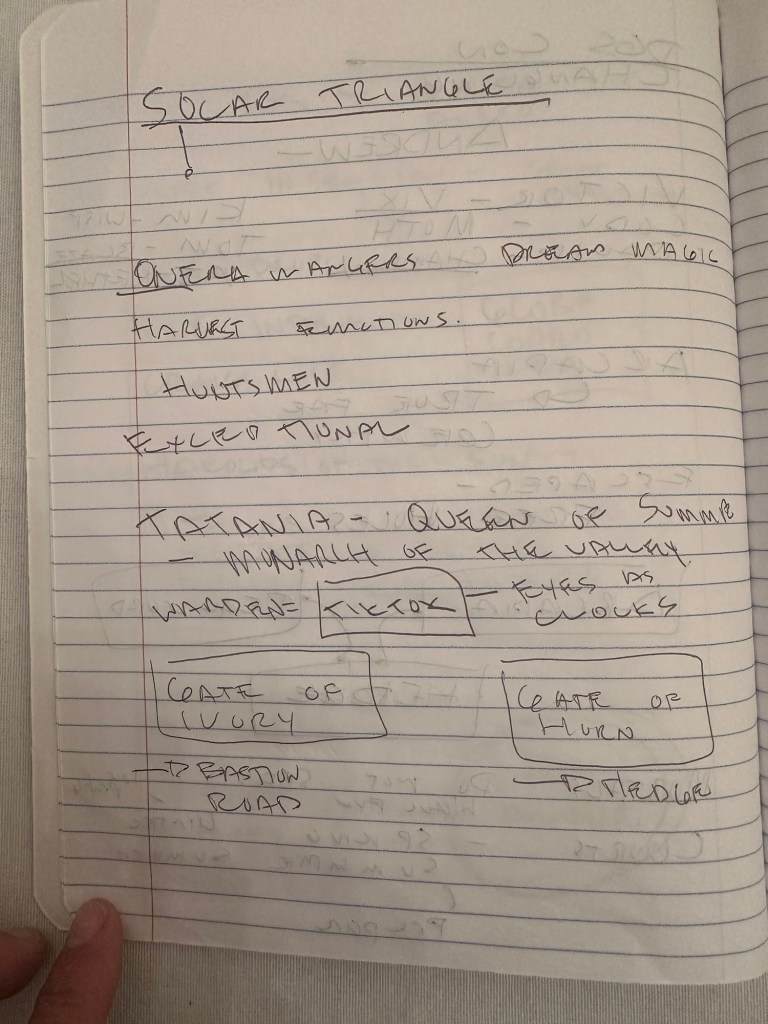 SOLAR TRIANGLE
ONERA MANCERS DREAM MAGIC
HARVEST EMOTIONS.
HUNTSMEN
EXCEPTIONAL
TATANIA - QUEEN OF SUMME
- MONARCH OF THE VALLEY.
WARDEN= TIKTOK - EYES AS
CLOCKS
GATE OF
IVORY
GATE OF
HORN
→ BASTION
ROAD
→ HEDGE